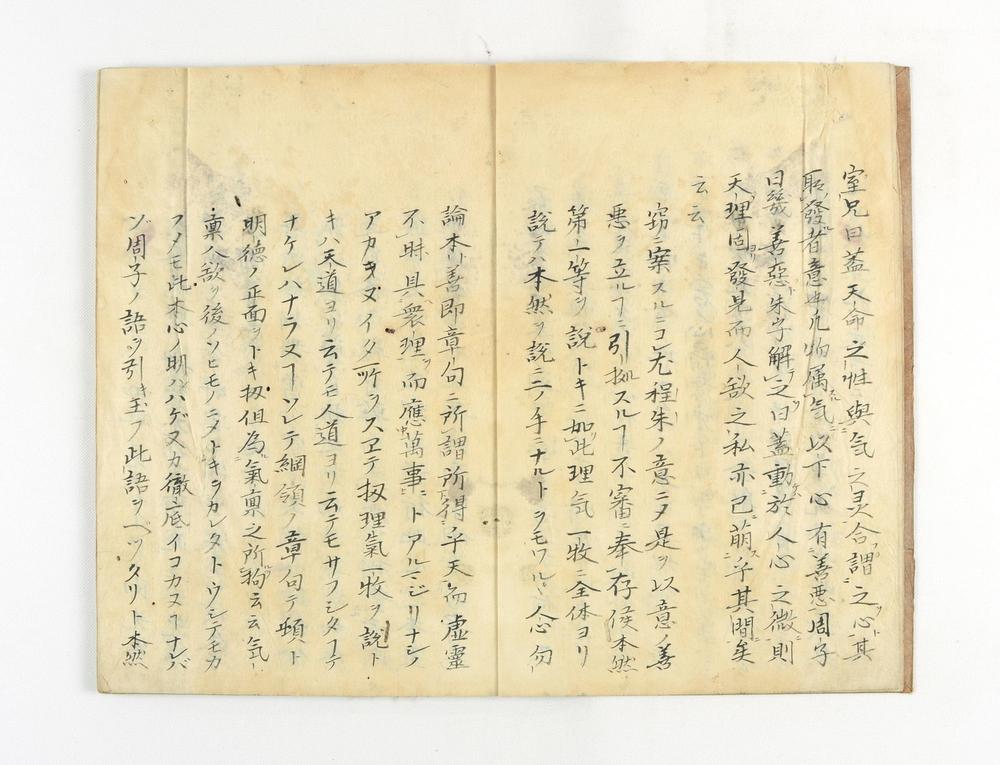 室兄曰蓋天命之性與气之灵合謂之心其
所發者意也凡物属气以下心有善悪周子
曰幾善惡朱子解之曰蓋動於人心之微則
天理固發見而人欲之私亦已萌乎其間矣
云云
窃ニ案スルニコレ尤程朱ノ意ニメ是ヲ以意ノ善
悪ヲ立ルヿニ引拠スルヿ不審ニ奉存候本然
第一等ヲ説トキニ如此理气一牧ニ全体ヨリ
説テハ本然ヲ説ニ二ノ手ニナルトヲモワルヽ人心勿
論本ト善即章句ニ所謂所得乎天而虚靈
不昧具衆理而應萬事ニトアルマジリナシノ
アカキヌイタ所ヲスヱテ扨理氣一牧ヲ説ト
キハ天道ヨリ云テモ人道ヨリ云テモサフシタヿテ
ナケレハナラヌヿソレテ綱領ノ章ノ句テ頓ト
明徳ノ正面ヲトキ扨但為氣稟之所拘云云气
稟人欲ヲ後ノソヒモノニメトキヲカレタトウシテモカ
フメモ此本心ノ明ハハゲヌカ徹底イコカヌヿナレバ
ゾ周子ノ語ヲ引キ玉フ此語ヲベツタリト本然